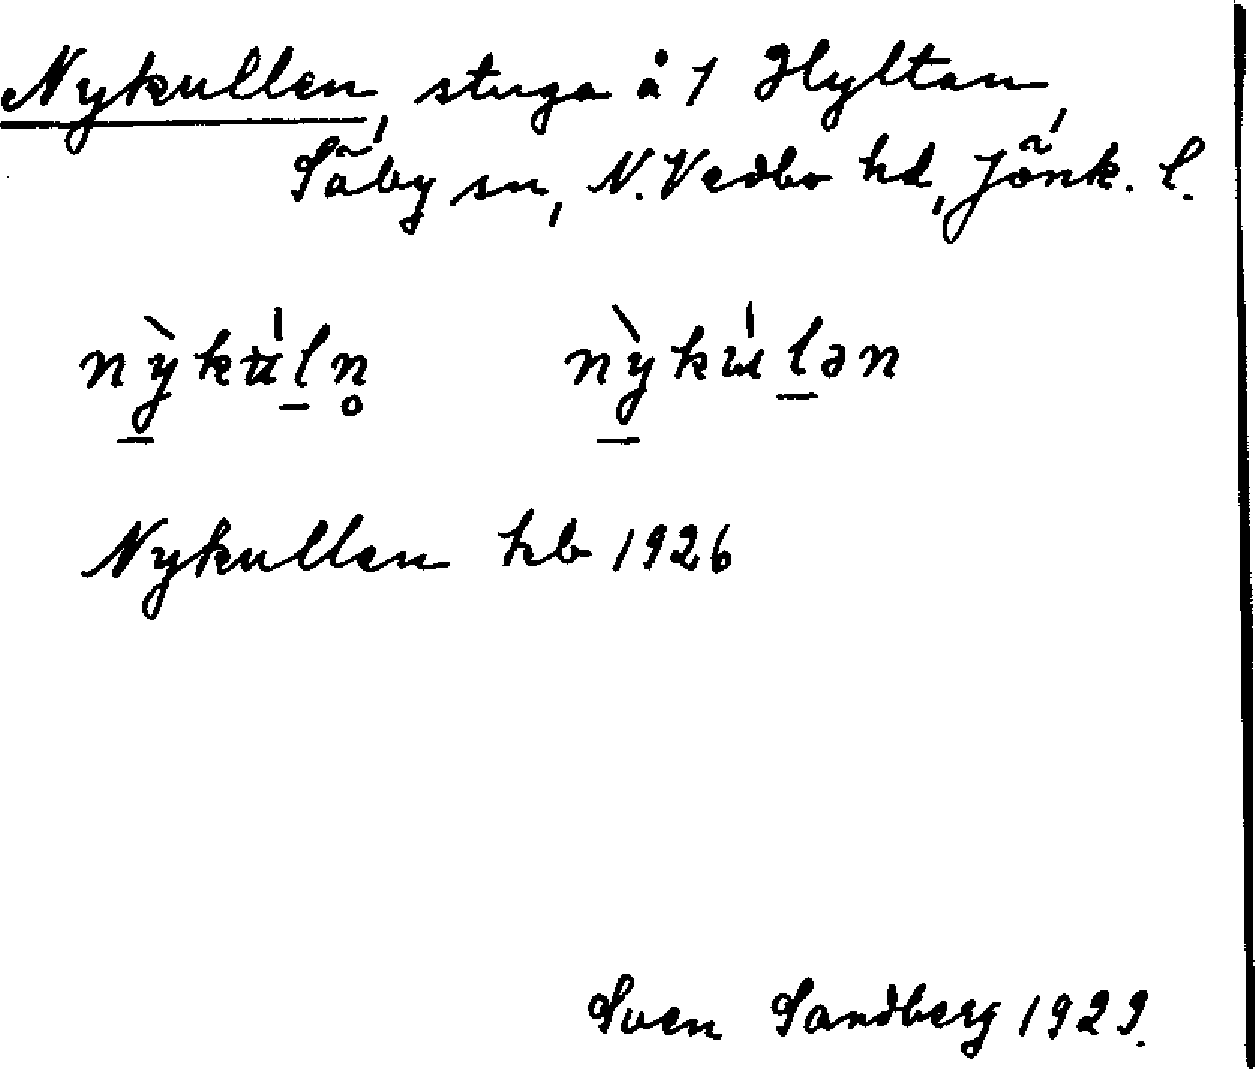 Nykullen, stuga å 1 Hyltan,
Säby sn, N. Vedbo hd, Jönk. l.
nỳ̠kʉ́l̠n̥ nỳ̠kɯ́l̠ən
Nykullen hb 1926
Sven Sandberg 1929.